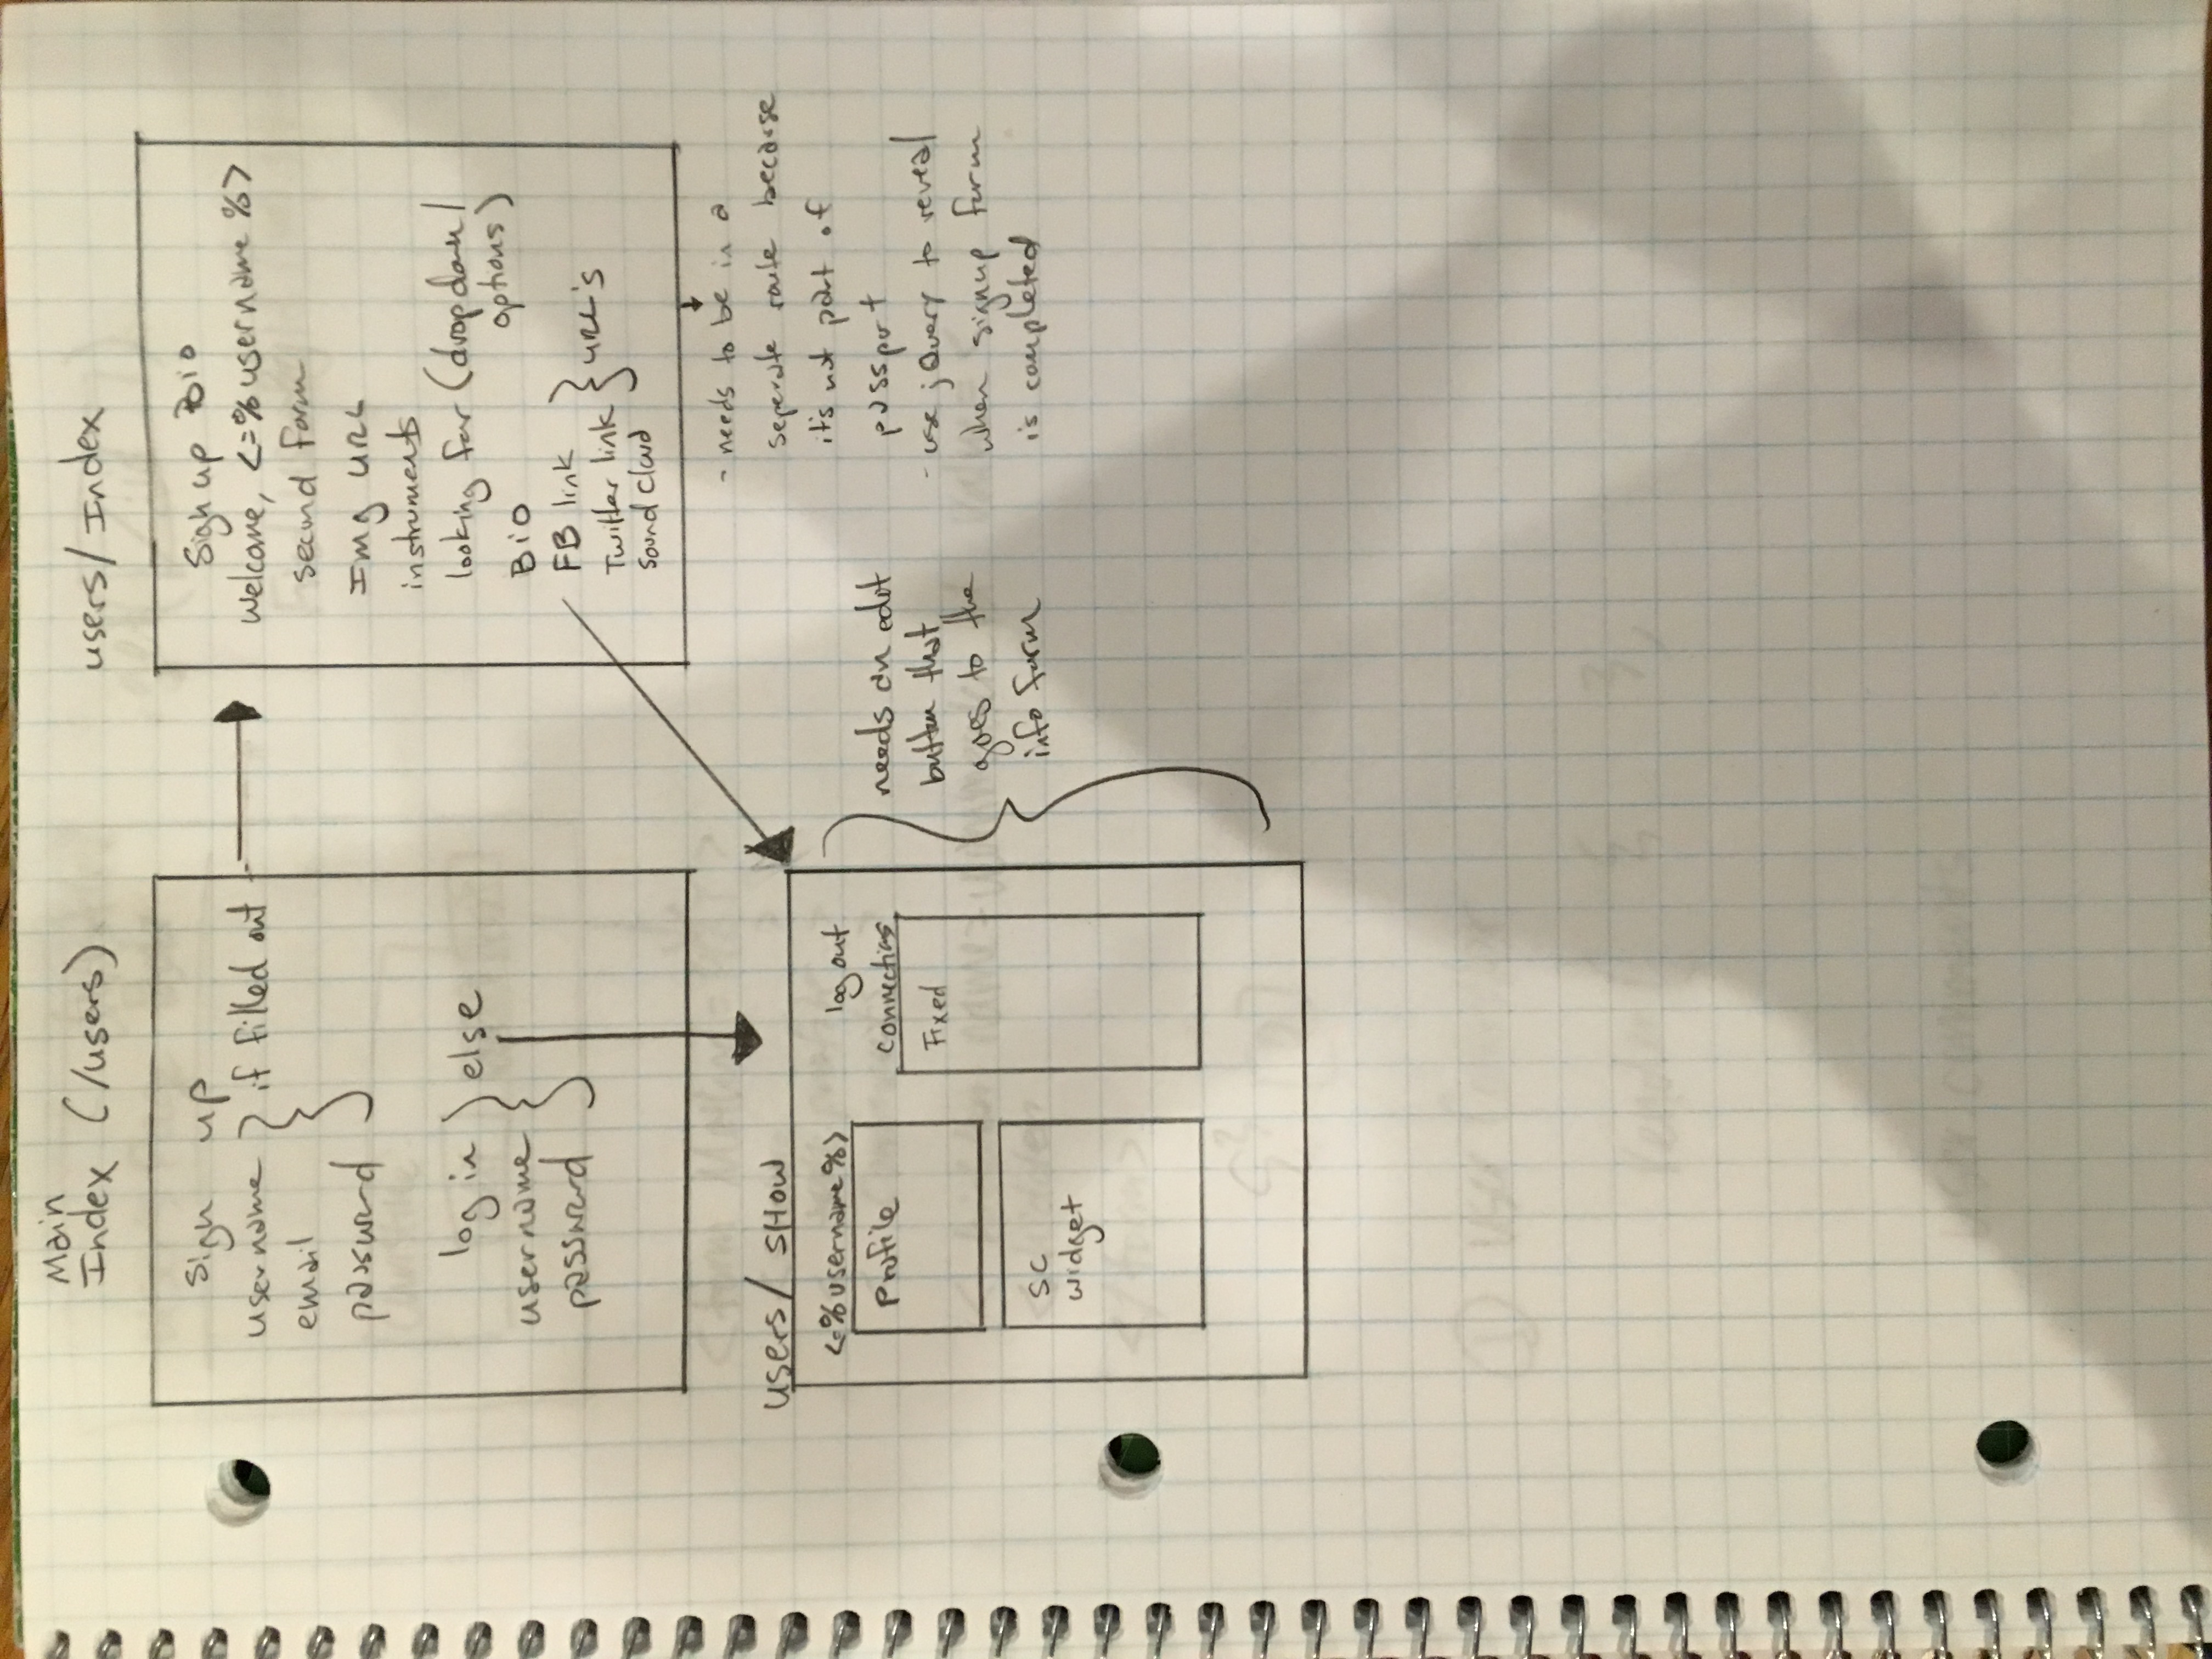 Main
Index (/users)
Sign up
username } if filled out
email
password
log in } else
username
password
users/Index
Sign up Bio
Welcome, <=%username%>
second form
Img URL
instruments
looking for (dropdown/
options)
Bio
FB link
Twitter link } URL's
Sound Cloud
- needs to be in a
seperate route because
it's not part of
passport
- use jQuery to reveal
when signup form
is completed
users/ SHOW
<=%username%>
log out
Profile
connections
Fixed
SC
widget
needs an edit
button that
goes to the
info form
user comments